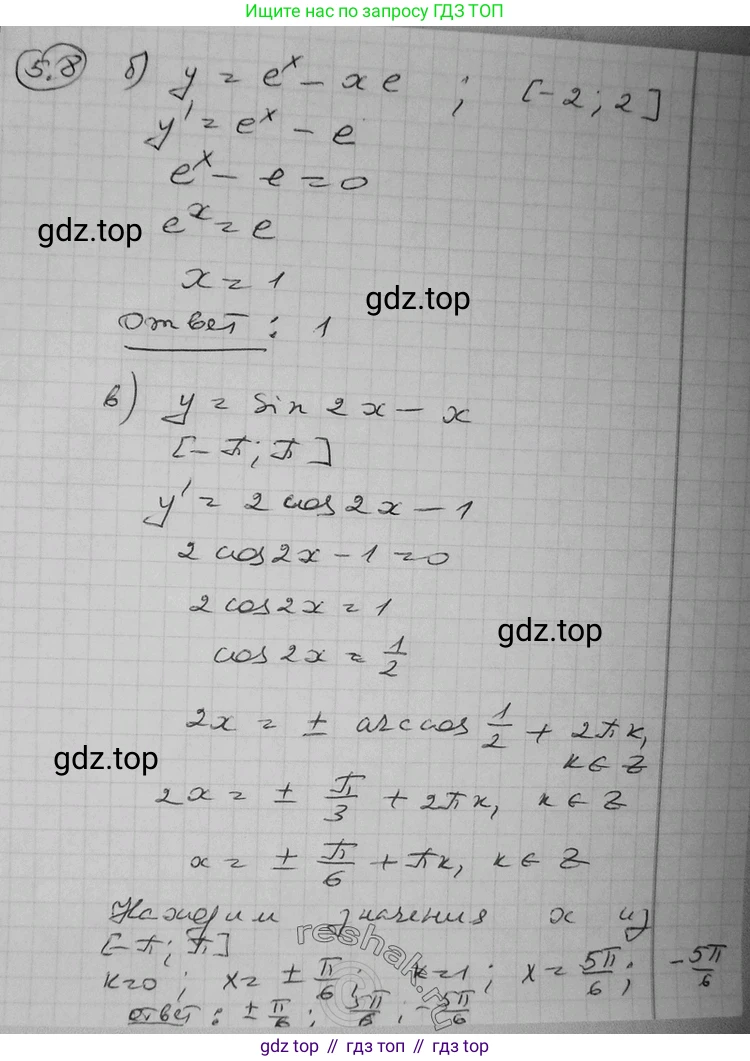 Ищите нас по запросу ГДЗ ТОП
5.8 б) y = e^x - xe ; [-2; 2]
y' = e^x - e
e^x - e = 0
e^x = e
gdz.top
x = 1
gdz.top
Ответ: 1
в) y = sin 2x - x
[-π; π]
y' = 2 cos 2x - 1
2 cos 2x - 1 = 0
2 cos 2x = 1
gdz.top
cos 2x = 1/2
2x = ± arccos 1/2 + 2πk,
k ∈ Z
gdz.top
2x = ± π/3 + 2πk, k ∈ Z
x = ± π/6 + πk, k ∈ Z
Находим значения x из
reshak.ru
[-π; π]
k=0; x = ± π/6; k=1; x = 5π/6; -5π/6
ответ: ± π/6; 5π/6; -5π/6
gdz.top // гдз топ // gdz top // гдз.top